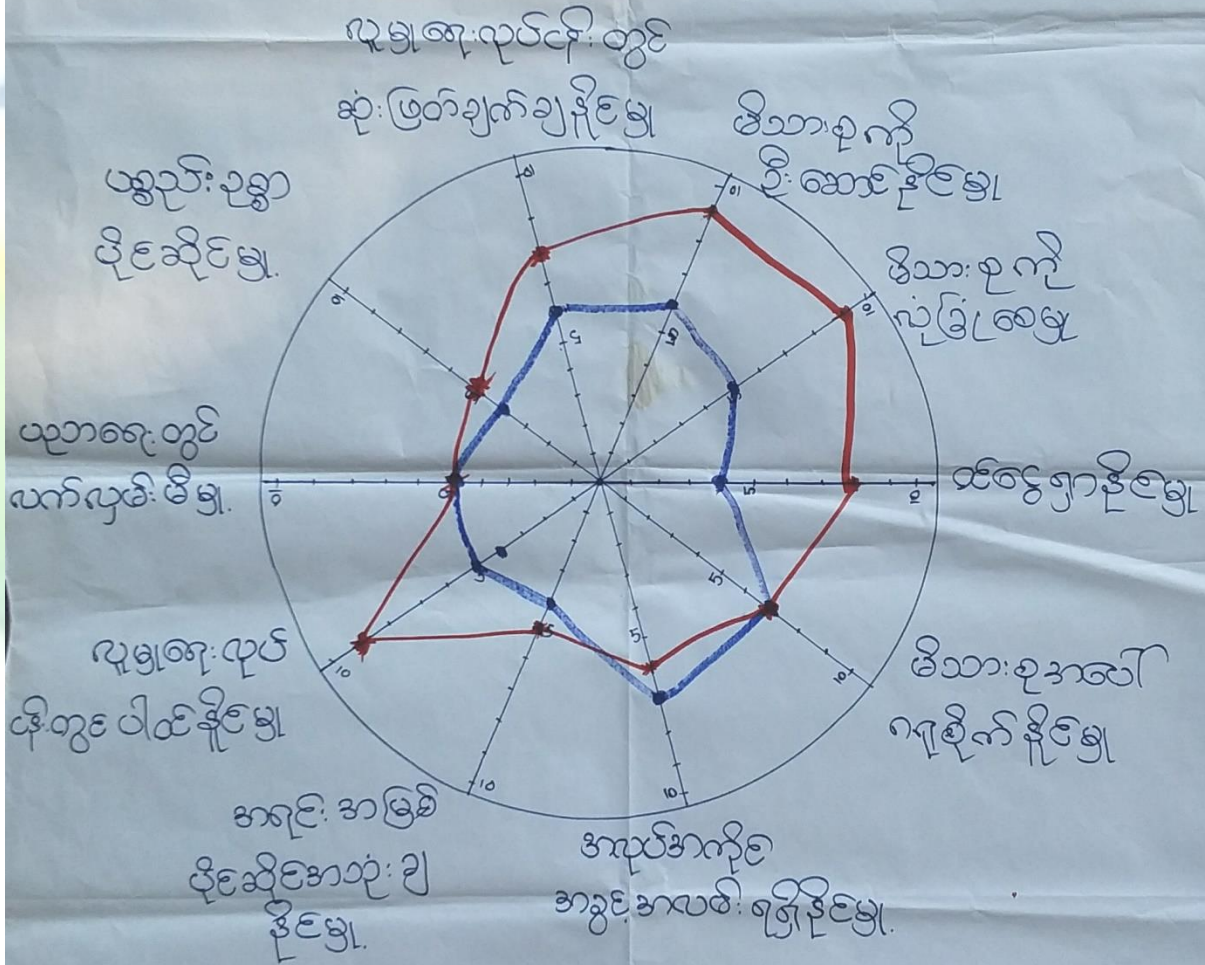 လူမှုရေးလုပ်ငန်းတွင်
ဆုံးဖြတ်ချက်ချနိုင်မှု
မိသားစုကို
ဦးဆောင်နိုင်မှု
မိသားစုကို
လုံခြုံစေမှု
ဝင်ငွေရှာနိုင်မှု
မိသားစုအပေါ်
ဂရုစိုက်နိုင်မှု
အလုပ်အကိုင်
အခွင့်အလမ်းရရှိနိုင်မှု
အရင်းအမြစ်
ပိုင်ဆိုင်အသုံးချ
နိုင်မှု
လူမှုရေးလုပ်
ငန်းတွင်ပါဝင်နိုင်မှု
ပညာရေးတွင်
လက်လှမ်းမီမှု
ပစ္စည်းဥစ္စာ
ပိုင်ဆိုင်မှု
10
5
5
5
5
10
5
10
5
10
5
10